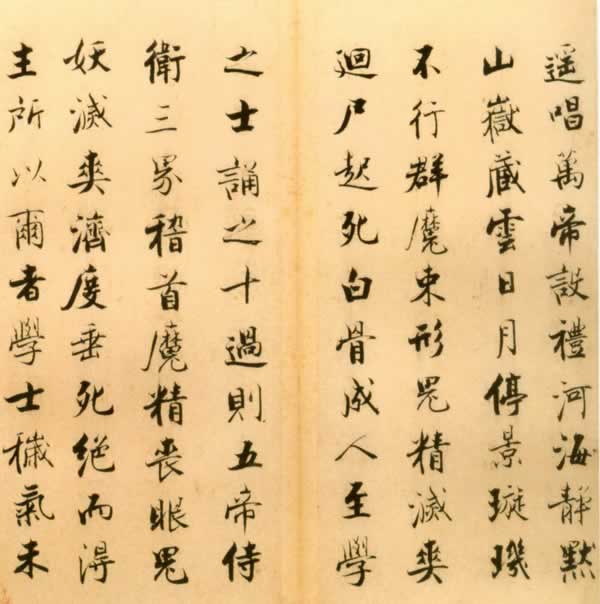 遥唱萬帝設禮河海静默
山嶽藏雲日月停景璇璣
不行群魔束形鬼精滅爽
廻尸起死白骨成人至學
之士誦之十過則五帝侍
衛三界稽首魔精喪眼鬼
妖滅爽濟度垂死絶而得
主所以爾者學士穢氣未